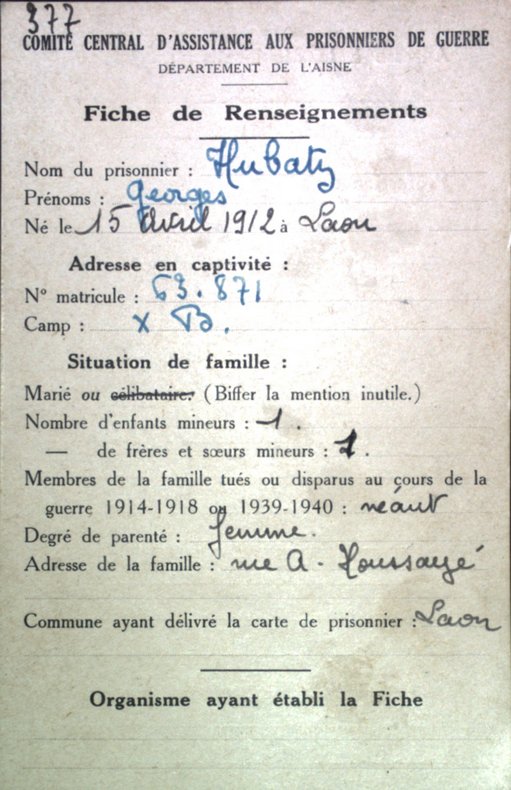 377
COMITÉ CENTRAL D'ASSISTANCE AUX PRISONNIERS DE GUERRE
DÉPARTEMENT DE L'AISNE
Fiche de Renseignements
Nom du prisonnier : Hubaty
Prénoms : Georges
Né le 15 Avril 1912 à Laon
Adresse en captivité :
N° matricule : 63.871
Camp : X B.
Situation de famille :
Marié ou célibataire. (Biffer la mention inutile.)
Nombre d'enfants mineurs : 1.
— de frères et sœurs mineurs : 1.
Membres de la famille tués ou disparus au cours de la
guerre 1914-1918 ou 1939-1940 : néant
Degré de parenté : femme.
Adresse de la famille : rue A. Houssaye
Commune ayant délivré la carte de prisonnier : Laon
Organisme ayant établi la Fiche